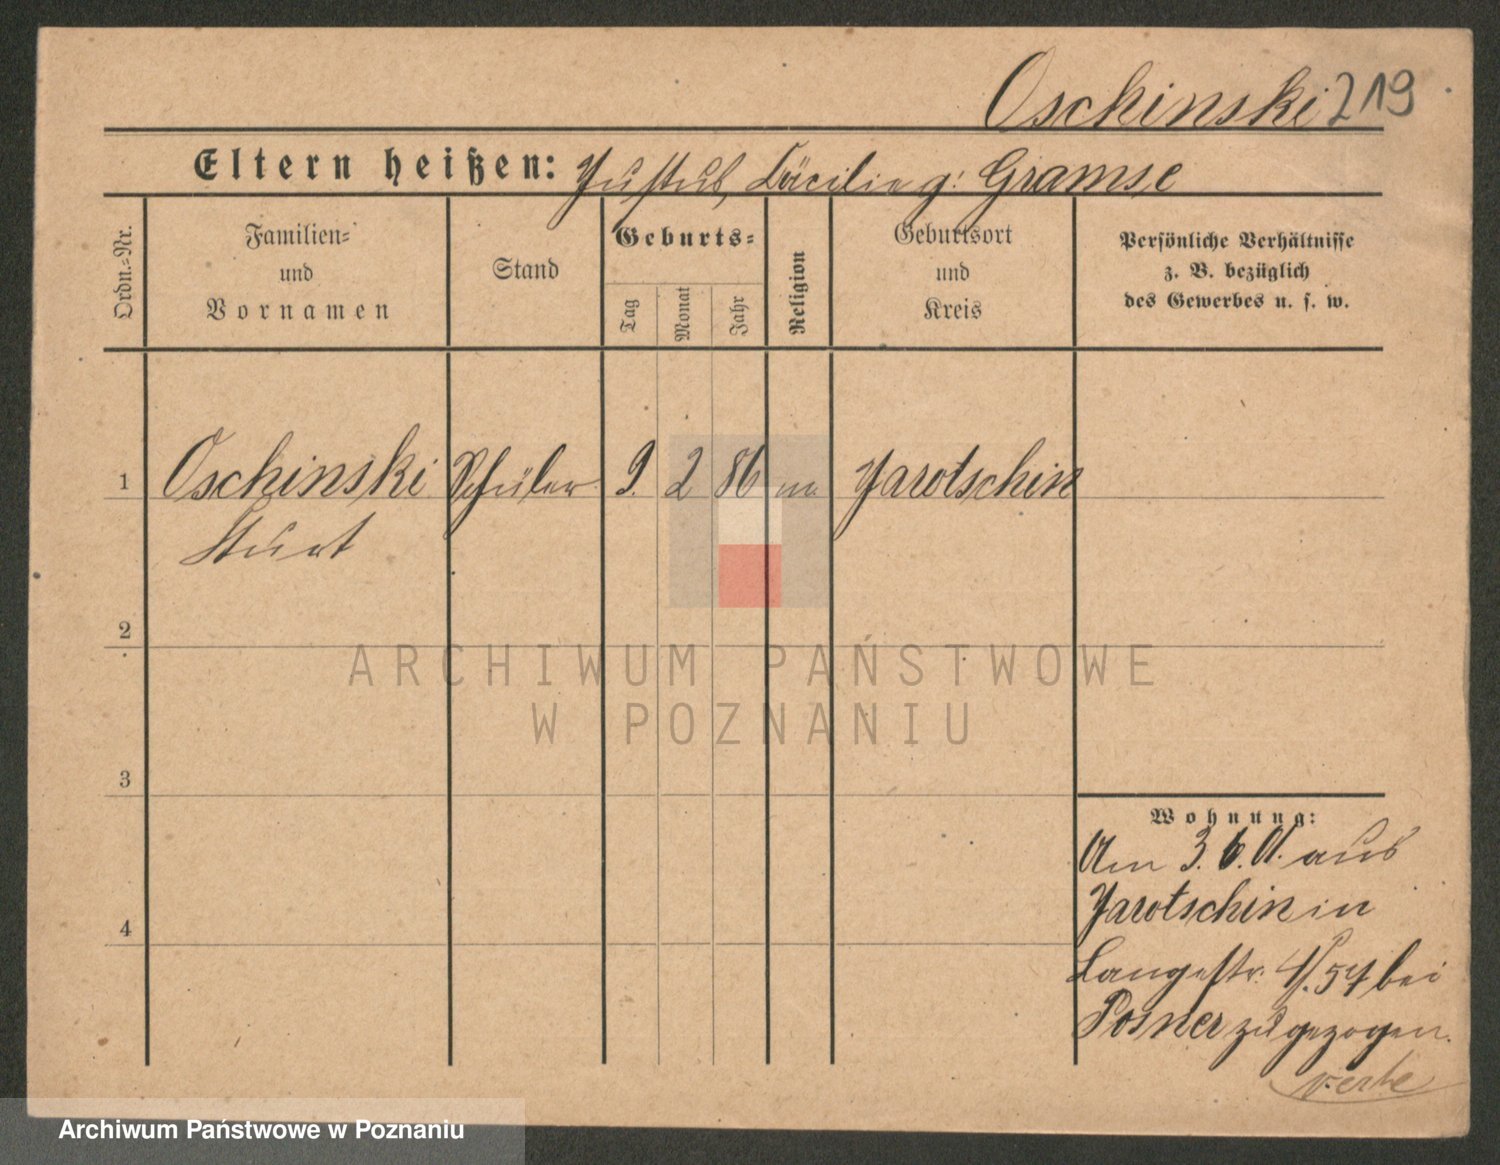 Oschinski 219
Eltern heißen: Justus, Cäcilie g: Gramse
Ordn.-Nr.
Familien- und Vornamen
Stand
Geburts-
Tag
Monat
Jahr
Religion
Geburtsort und Kreis
Persönliche Verhältnisse
z. B. bezüglich
des Gewerbes u. s. w.
1 Oschinski Schüler 9. 2 86 m. Jarotschin
Kurt
2
ARCHIWUM PAŃSTWOWE
W POZNANIU
3
Wohnung:
Am 3. 6. 01. aus
Jarotschin in
4
Langestr. 4/I. 57 bei
Posner zugezogen.
Archiwum Państwowe w Poznaniu